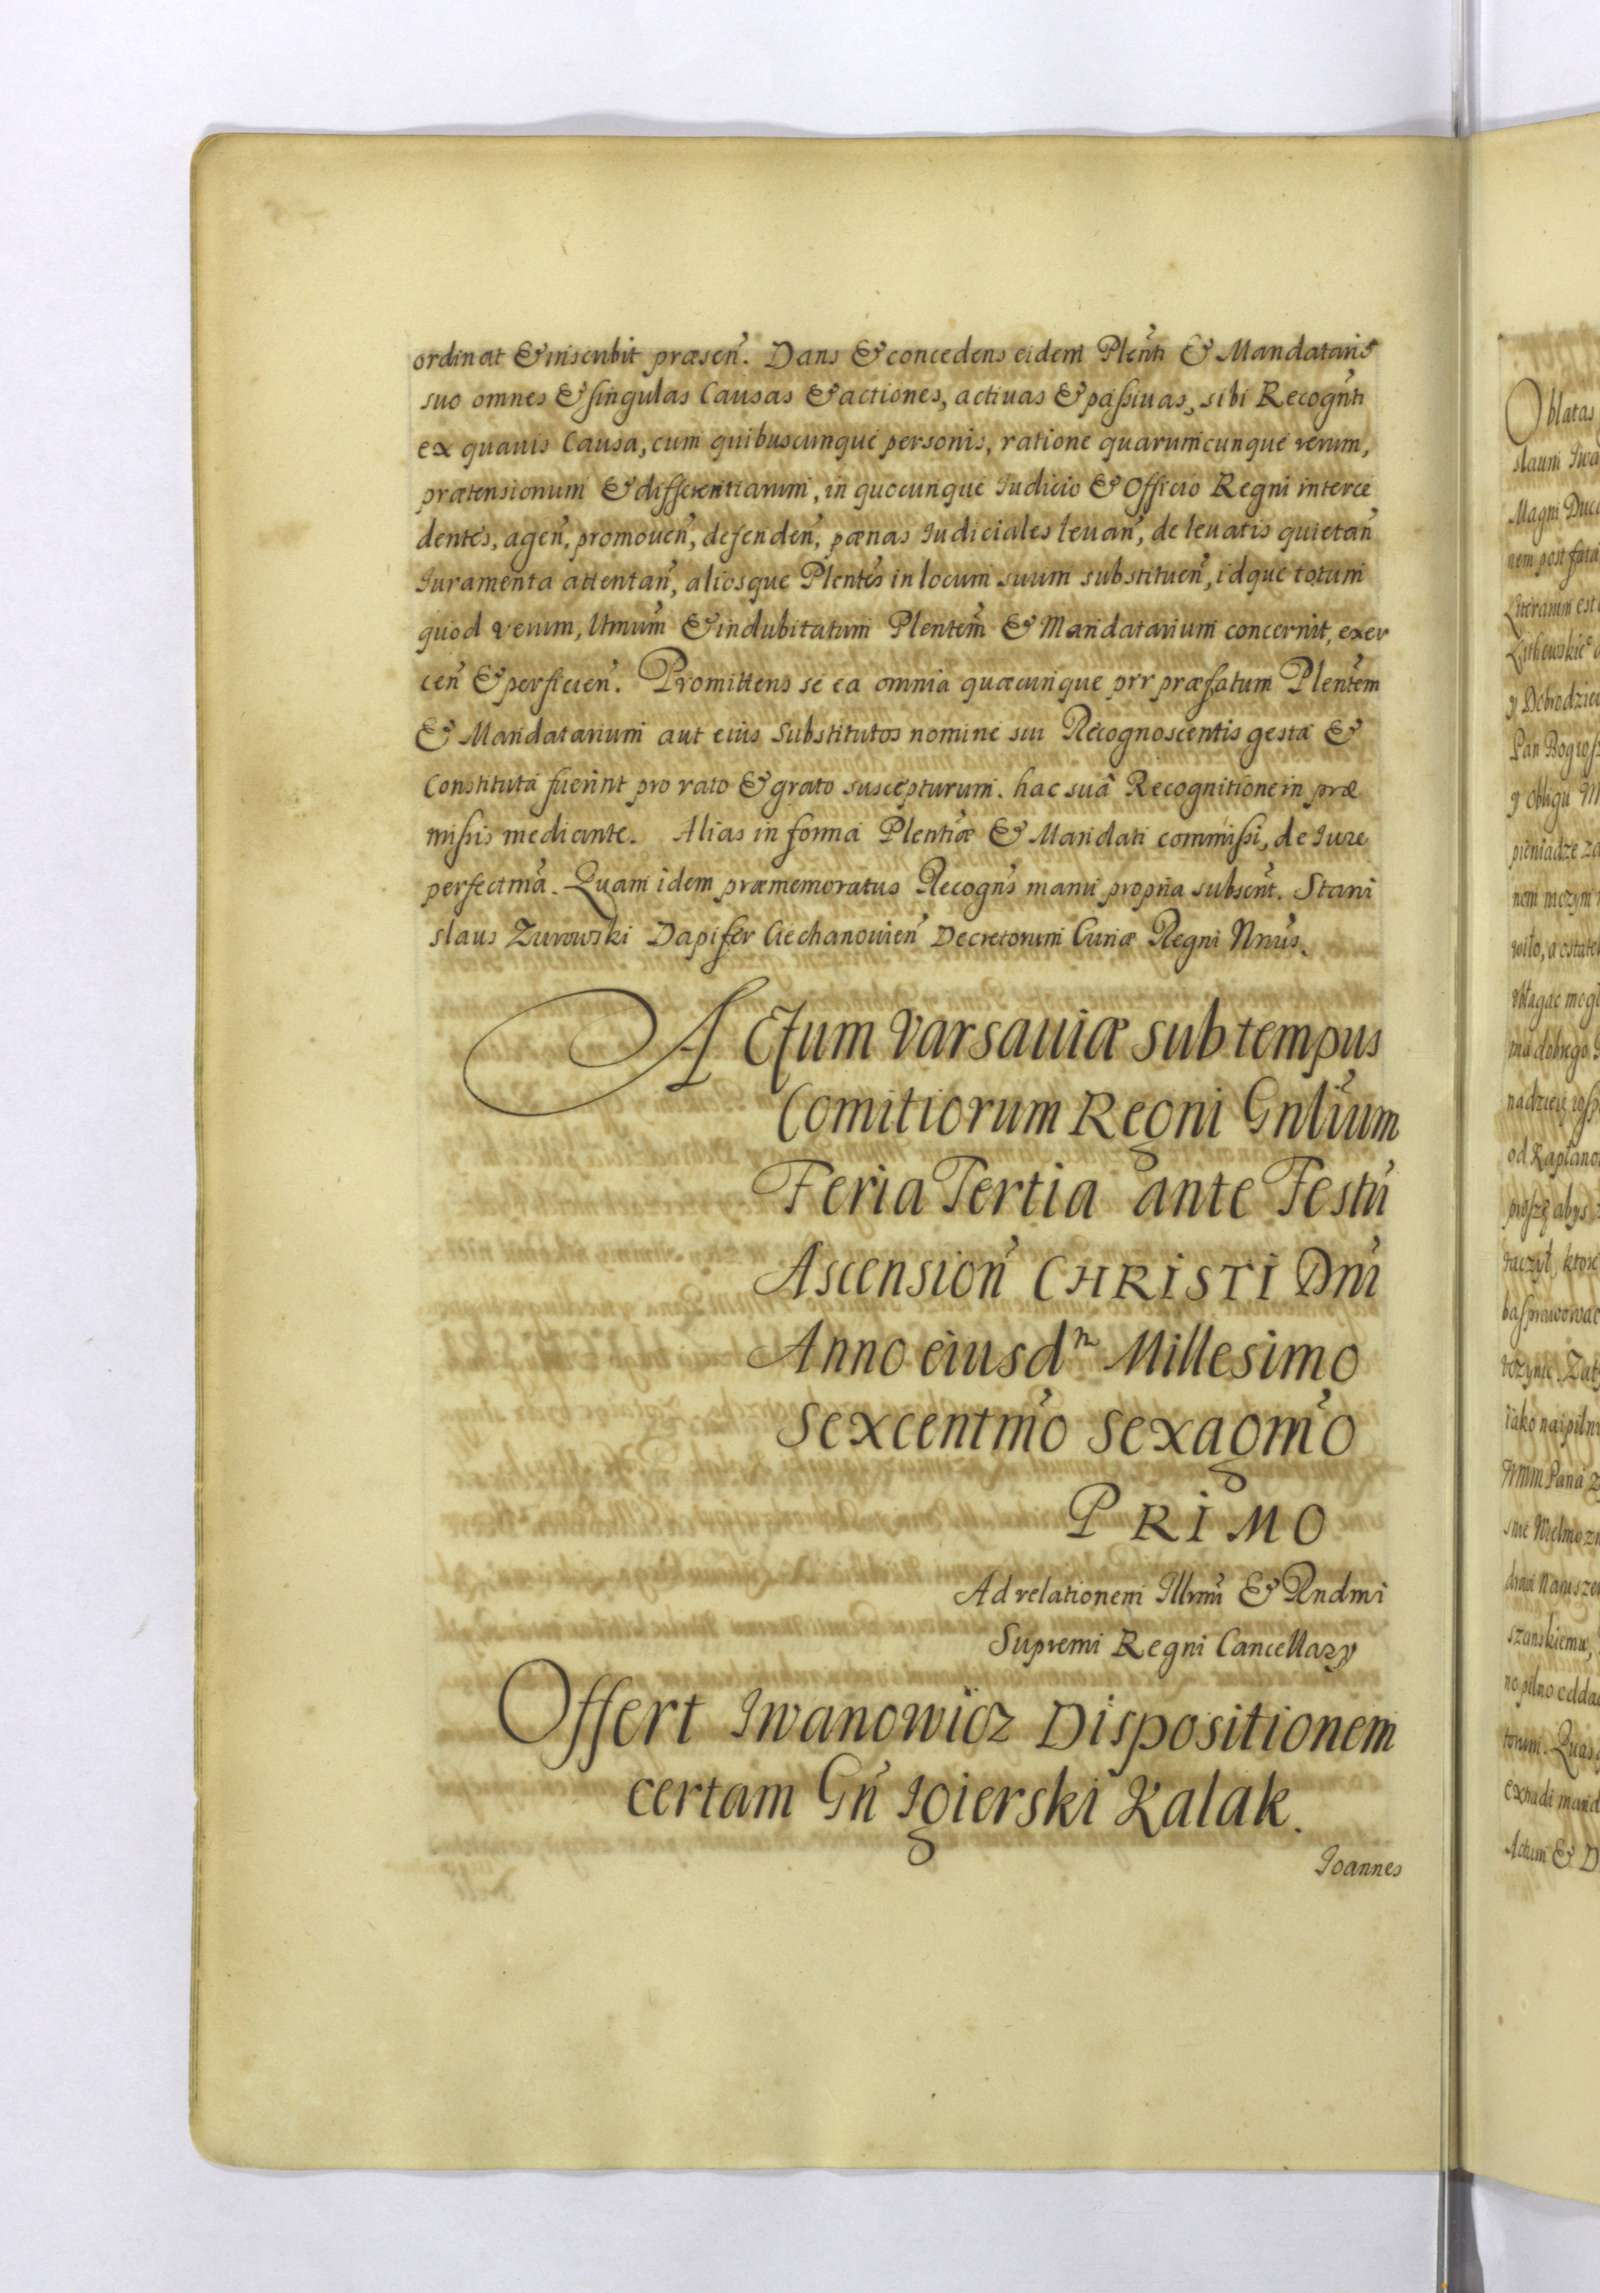 ordinat & inscribit præsen̄. Dans & concedens eidem Plen̄ti & Mandatario
suo omnes & singulas Causas & actiones, activas & passivas, sibi Recogn̄ti
ex quavis Causa, cum quibuscunque personis, ratione quarumcunque rerum,
prætensionum & differentiarum, in quocunque Iudicio & Officio Regni interce
dentes, agen̄, promoven̄, defenden̄, pænas Iudiciales levan̄, de levatis quietan̄
Iuramenta attentan̄, aliosque Plentēs in locum suum substituen̄, idque totum
quod verum, Ltmūm & indubitatum Plentēm & Mandatarium concernit, exer
cen̄ & perficien̄. Promittens se ea omnia quæcunque prr præfatum Plentēm
& Mandatarium aut eius Substitutos nomine sui Recognoscentis gesta &
Constituta fuerint pro rato & grato suscepturum. hac suâ Recognitione in præ
missis mediante. Alias in forma Plentīæ & Mandati commissi, de Iure
perfectmā. Quam idem præmemoratus Recogn̄s manu propria subscrīt. Stani
slaus Zurowski Dapifer Ciechanovien̄ Decretorum Curiæ Regni Nrīus.
Actum Varsaviæ sub tempus
Comitiorum Regni Gnlīum
Feria Tertia ante Festū
Ascension̄ CHRISTI Dnī
Anno eiusdⁿ Millesimo
Sexcentmō Sexagmō
PRIMO
Ad relationem Illrmī & Rndmi
Supremi Regni Cancellary
Offert Iwanowicz Dispositionem
certam Gn̄ Igierski Kalak.
Ioannes
Oblatas
Magni Duca